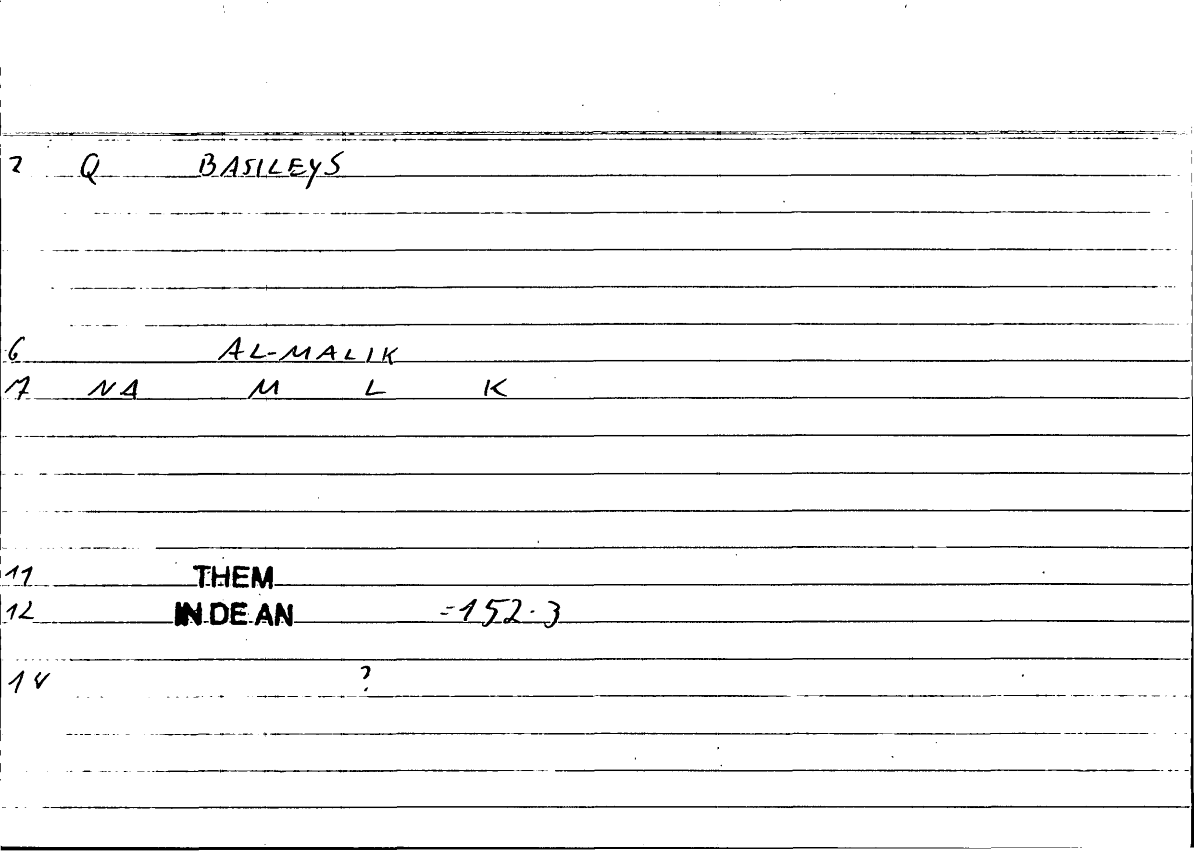 2 Q BASILEYS
6 AL-MALIK
7 NA M L K
11 THEM
12 IN DE AN =152.3
14 ?